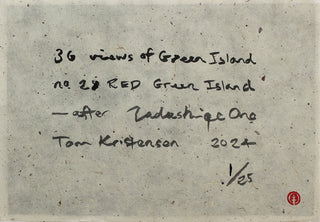 36 views of Green Island
no 28 RED Green Island
— after Tadashige Ono
Tom Kristensen 2024
1/25